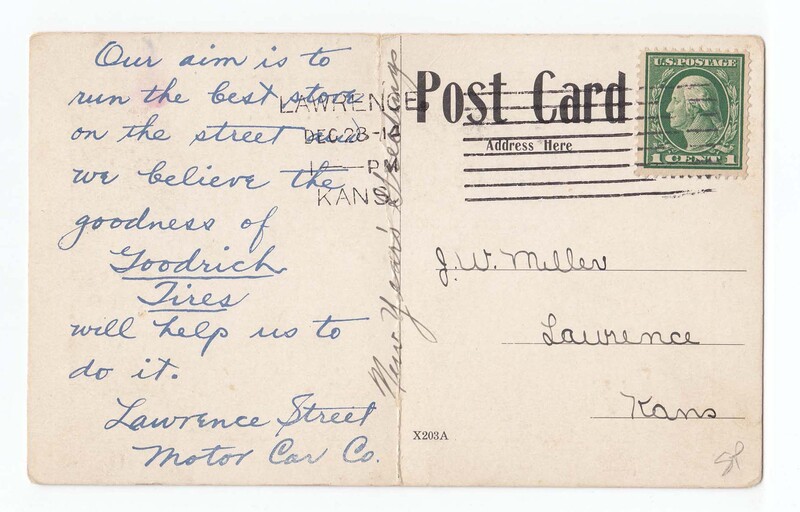 Our aim is to
run the best store
on the street and
we believe the
goodness of
Goodrich
Tires
will help us to
do it.
Lawrence Street
Motor Car Co.
New Year's Greetings
LAWRENCE,
DEC 28-14
PM
KANS.
Post Card
Address Here
U.S. POSTAGE
1 CENT 1
J.W. Miller
Lawrence
Kans
X203A